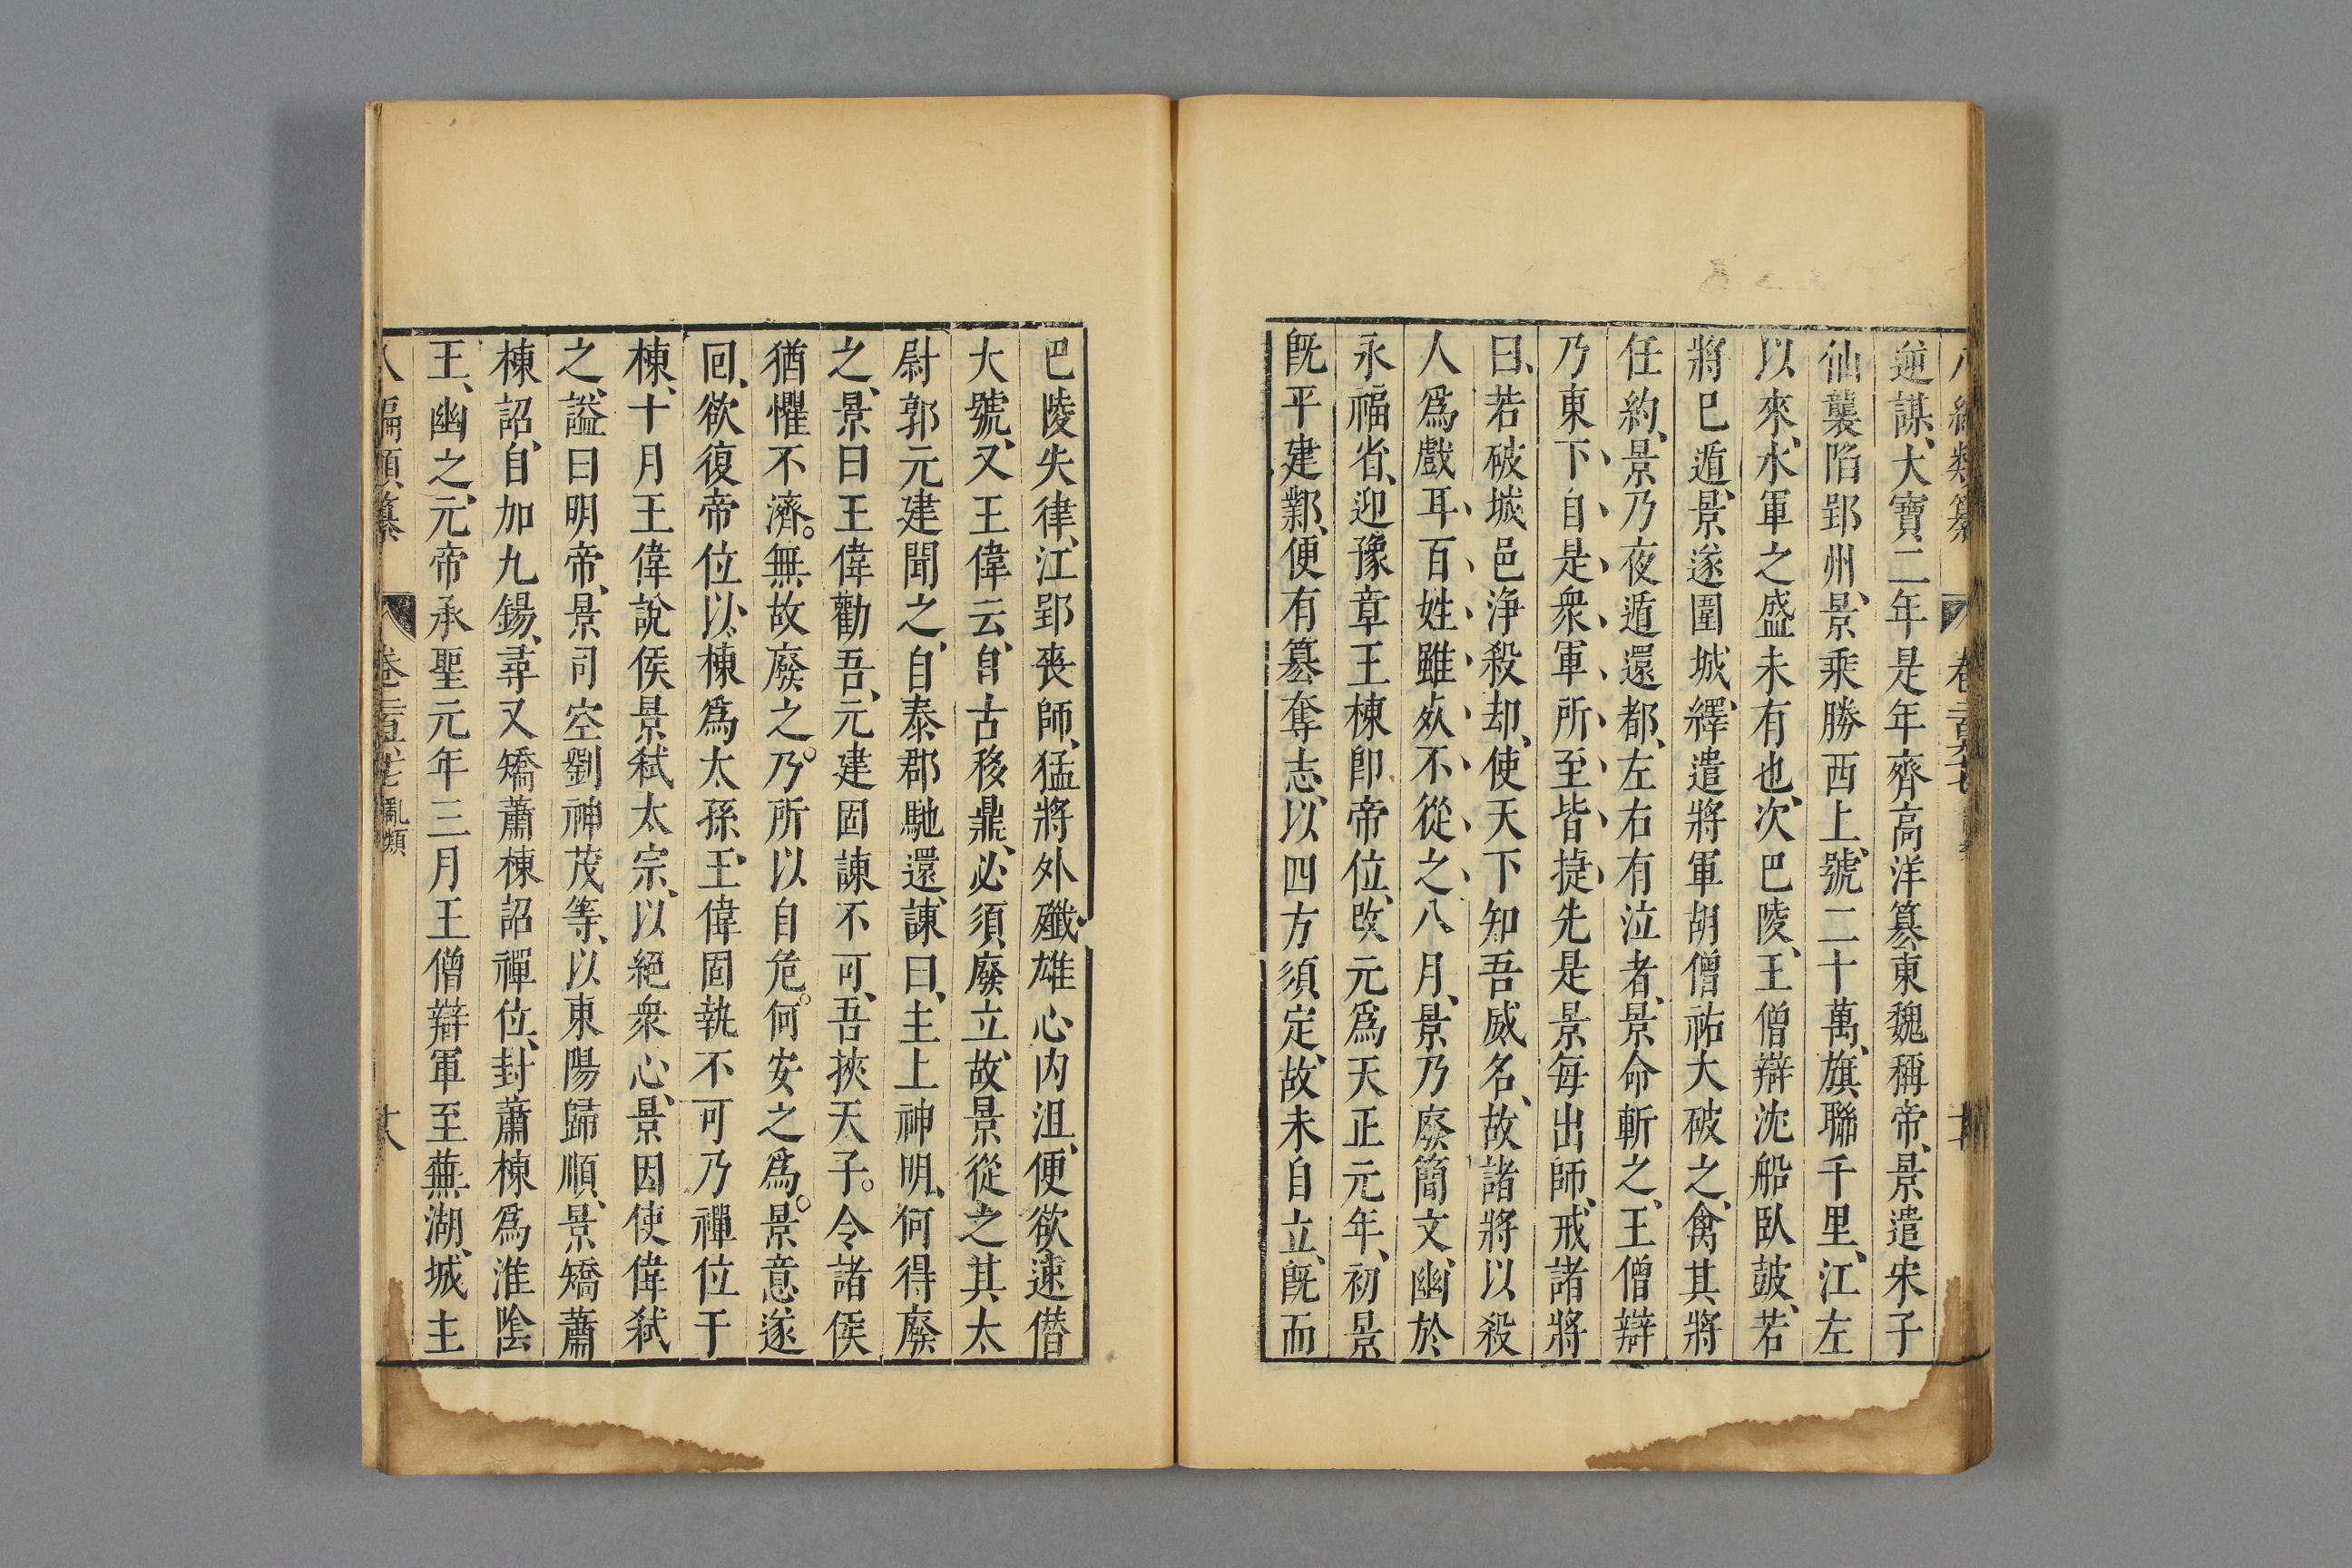 逆謀、大寶二年是年齊高洋篡東魏稱帝、景遣宋子
仙襲陷郢州、景乘勝西上、號二十萬、旗聯千里、江左
以來、水軍之盛未有也、次巴陵、王僧辯沈船臥鼓、若
將巳遁、景遂圍城、繹遣將軍胡僧祐大破之、禽其將
任約、景乃夜遁還都、左右有泣者、景命斬之、王僧辯
乃東下、自是衆軍所至皆捷、先是景每出師、戒諸將
曰、若破城邑淨殺却、使天下知吾威名、故諸將以殺
人爲戲耳、百姓雖死不從之、八月、景乃廢簡文、幽於
永福省、迎豫章王棟卽帝位、改元爲天正元年、初景
旣平建鄴、便有篡奪志、以四方須定、故未自立、旣而
巴陵失律、江郢喪師、猛將外殲、雄心内沮、便欲速僭
大號、又王偉云、自古移鼎、必須廢立、故景從之其太
尉郭元建聞之、自秦郡馳還、諫曰、主上神明、何得廢
之、景曰王偉勸吾、元建固諫不可、吾挾天子。令諸侯
猶懼不濟。無故廢之。乃所以自危。何安之爲。景意遂
回、欲復帝位、以棟爲太孫、王偉固執不可乃禪位于
棟、十月王偉說侯景弒太宗、以絕衆心、景因使偉弒
之、謚曰明帝、景司空劉神茂等、以東陽歸順、景矯蕭
棟詔、自加九錫、尋又矯蕭棟詔禪位、封蕭棟爲淮陰
王、幽之、元帝承聖元年三月王僧辯軍至蕪湖、城主
八編類纂 卷二百五十七 亂類 十八